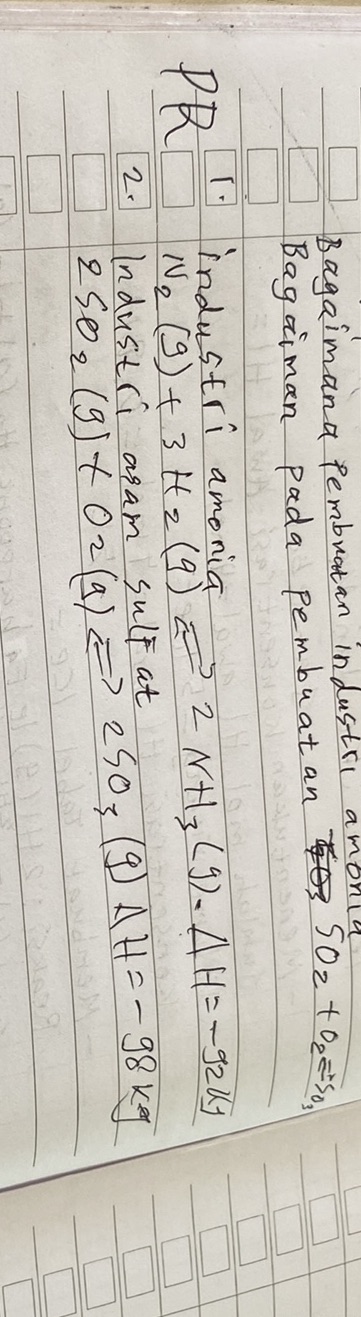 Bagaimana Pembuatan industri amonia
Bagaiman pada pembuatan SO2 + O2 ⇌ SO3
PR
1. industri amonia
N2 (g) + 3 H2 (g) ⇌ 2 NH3 (g). ΔH = -92 kg
2. Industri asam sulfat
2 SO2 (g) + O2 (g) ⇌ 2 SO3 (g) ΔH = -98 kg